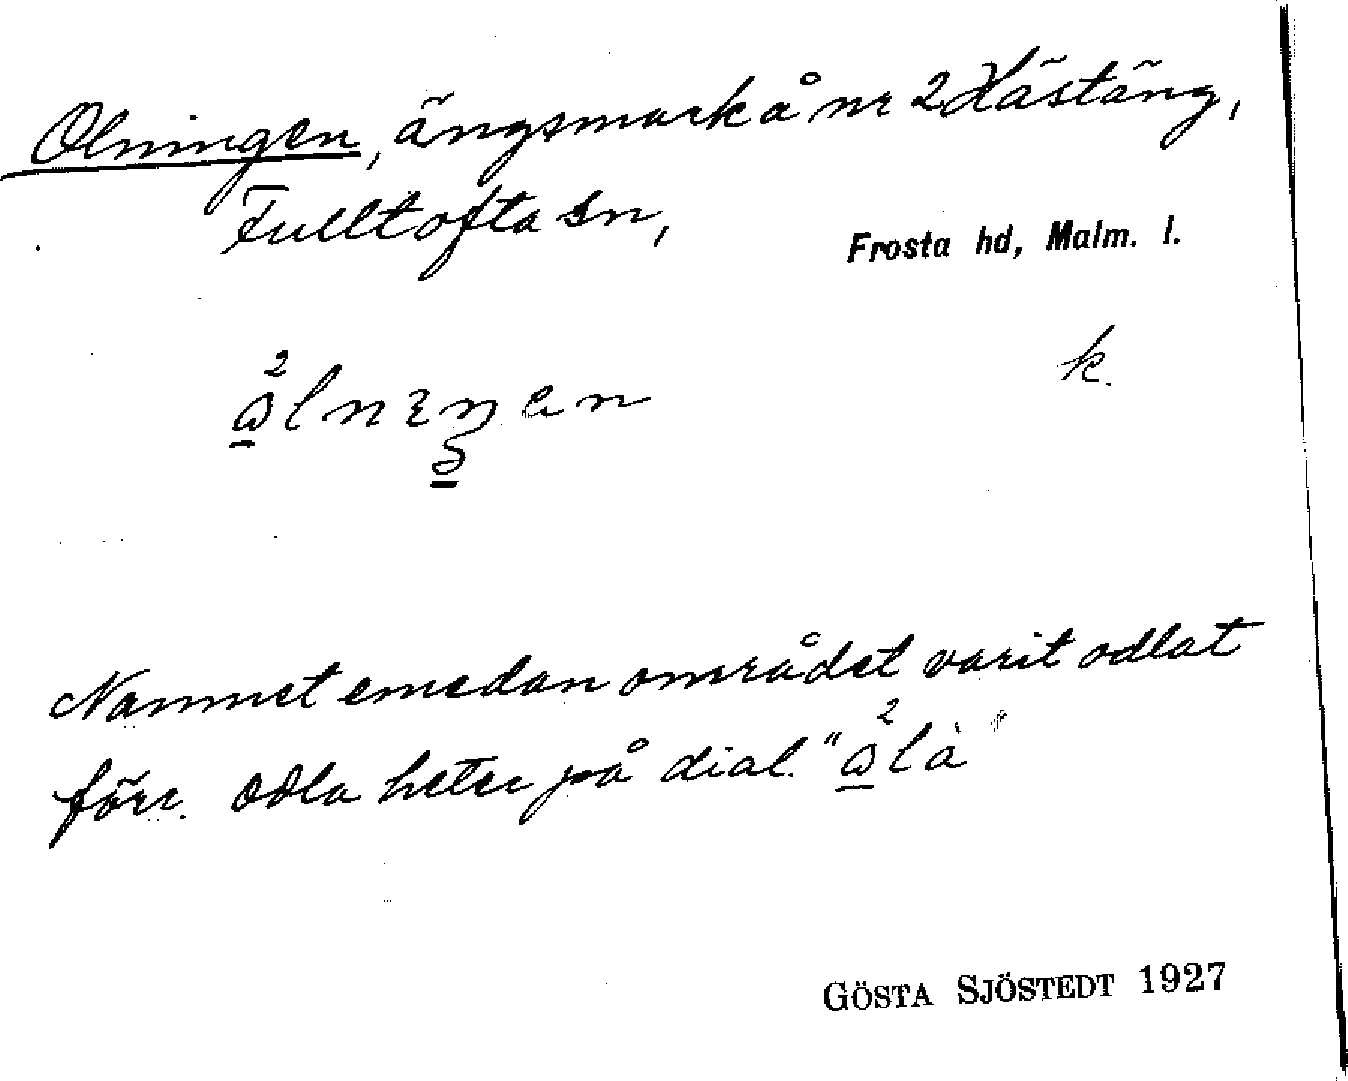 Olningen, ängsmark å nr 2 Hästäng,
Fulltofta sn,
Frosta hd, Malm. l.
k.
Namnet emedan området varit odlat
förr. Odla heter på dial.
GÖSTA SJÖSTEDT 1927